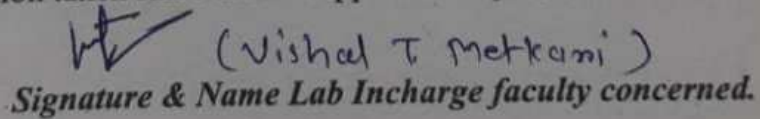 (Vishal T Metkami)
Signature & Name Lab Incharge faculty concerned.